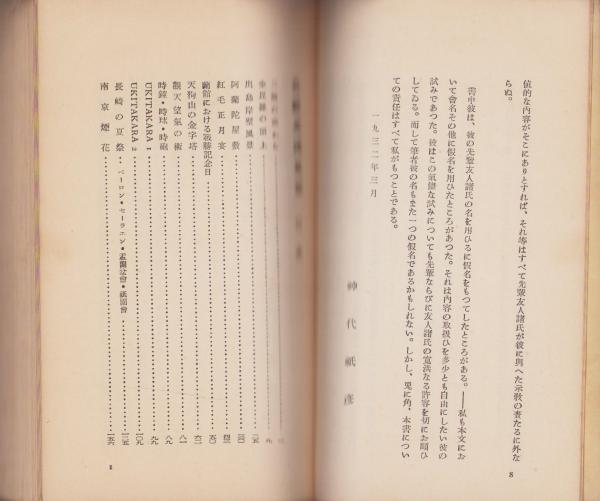 値的な内容がそこにありとすれば、それ等はすべて先輩友人諸氏が彼に與へた示敎の賚たるに外な
らぬ。
書中彼は、彼の先輩友人諸氏の名を用ひるに假名をもつてしたところがある。――私も本文にお
いて會名その他に假名を用ひたところがあつた。それは內容の取扱ひを多少とも自由にしたい彼の
試みであつた。彼はこの氣儘な試みについても先輩ならびに友人諸氏の寬汎なる許容を切にお願ひ
してゐる。而して筆者彼の名もまた一つの假名であるかもしれない。しかし、兎に角、本書につい
ての責任はすべて私がもつことである。
一九三二年三月
神代祇彥
8
出島岸壁風景
阿蘭陀屋敷
紅毛正月宴
蘭館における戰勝記念日
天狗山の金字塔
觀天望氣の術
時鐘・時球・時砲
UKITAKARA 1
UKITAKARA 2
長崎の夏祭 ペーロン・セーラエン・盂蘭盆會・祇園會
南京煙花
1